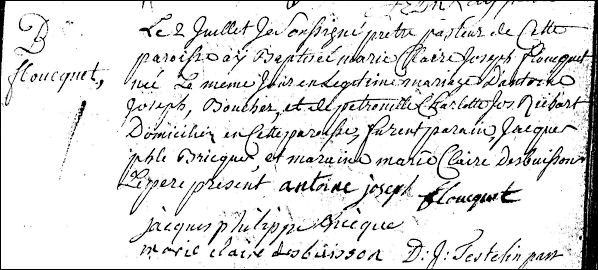 B
floucquet,
Le 2 Juillet Je Soussigné pretre pasteur de Cette
paroisse aÿ Baptisé marie Claire Joseph floucquet
née Le meme Jour en Legitime mariage D'antoine
Joseph, Boucher, et de petronille Charlotte Jos Riebart
Domiciliez en Cette paroisse, furent parain, Jacque
phle Bricque, et maraine marie Claire desbuisson
Le pere present, antoine joseph floucquet
jacques philippe Bricque
marie claire desbuisson D: J: Testelin past